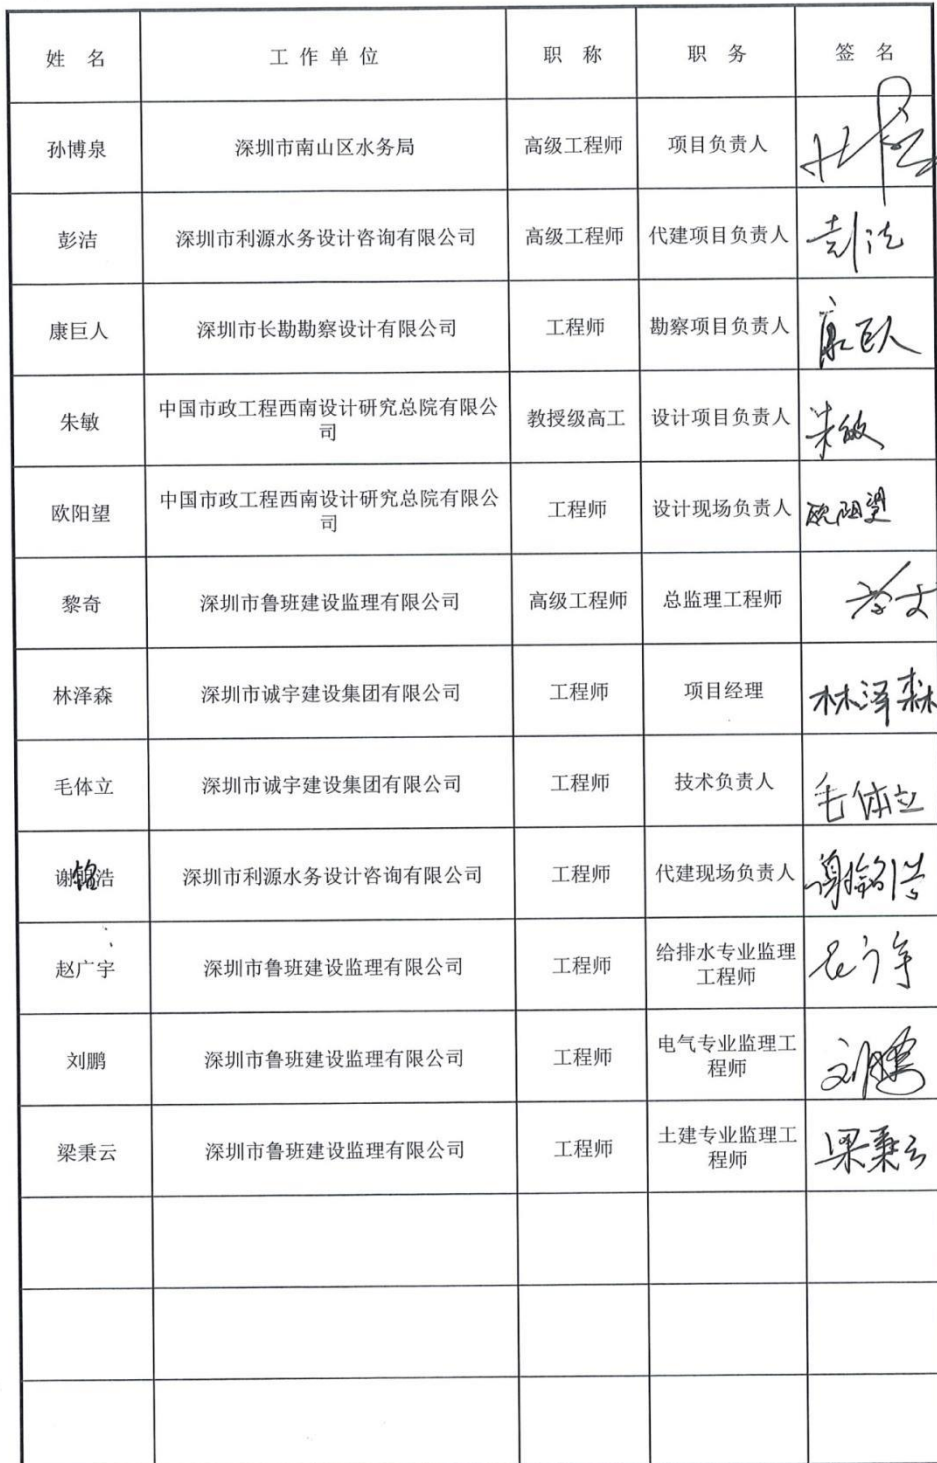 姓 名 工作单位 职 称 职 务 签 名
孙博泉 深圳市南山区水务局 高级工程师 项目负责人
彭洁 深圳市利源水务设计咨询有限公司 高级工程师 代建项目负责人 彭洁
康巨人 深圳市长勘勘察设计有限公司 工程师 勘察项目负责人 康巨人
朱敏 中国市政工程西南设计研究总院有限公
司 教授级高工 设计项目负责人 朱敏
欧阳望 中国市政工程西南设计研究总院有限公
司 工程师 设计现场负责人 欧阳望
黎奇 深圳市鲁班建设监理有限公司 高级工程师 总监理工程师
林泽森 深圳市诚宇建设集团有限公司 工程师 项目经理 林泽森
毛体立 深圳市诚宇建设集团有限公司 工程师 技术负责人 毛体立
谢铭浩 深圳市利源水务设计咨询有限公司 工程师 代建现场负责人 谢铭浩
赵广宇 深圳市鲁班建设监理有限公司 工程师 给排水专业监理
工程师
刘鹏 深圳市鲁班建设监理有限公司 工程师 电气专业监理工
程师 刘鹏
梁秉云 深圳市鲁班建设监理有限公司 工程师 土建专业监理工
程师 梁秉云